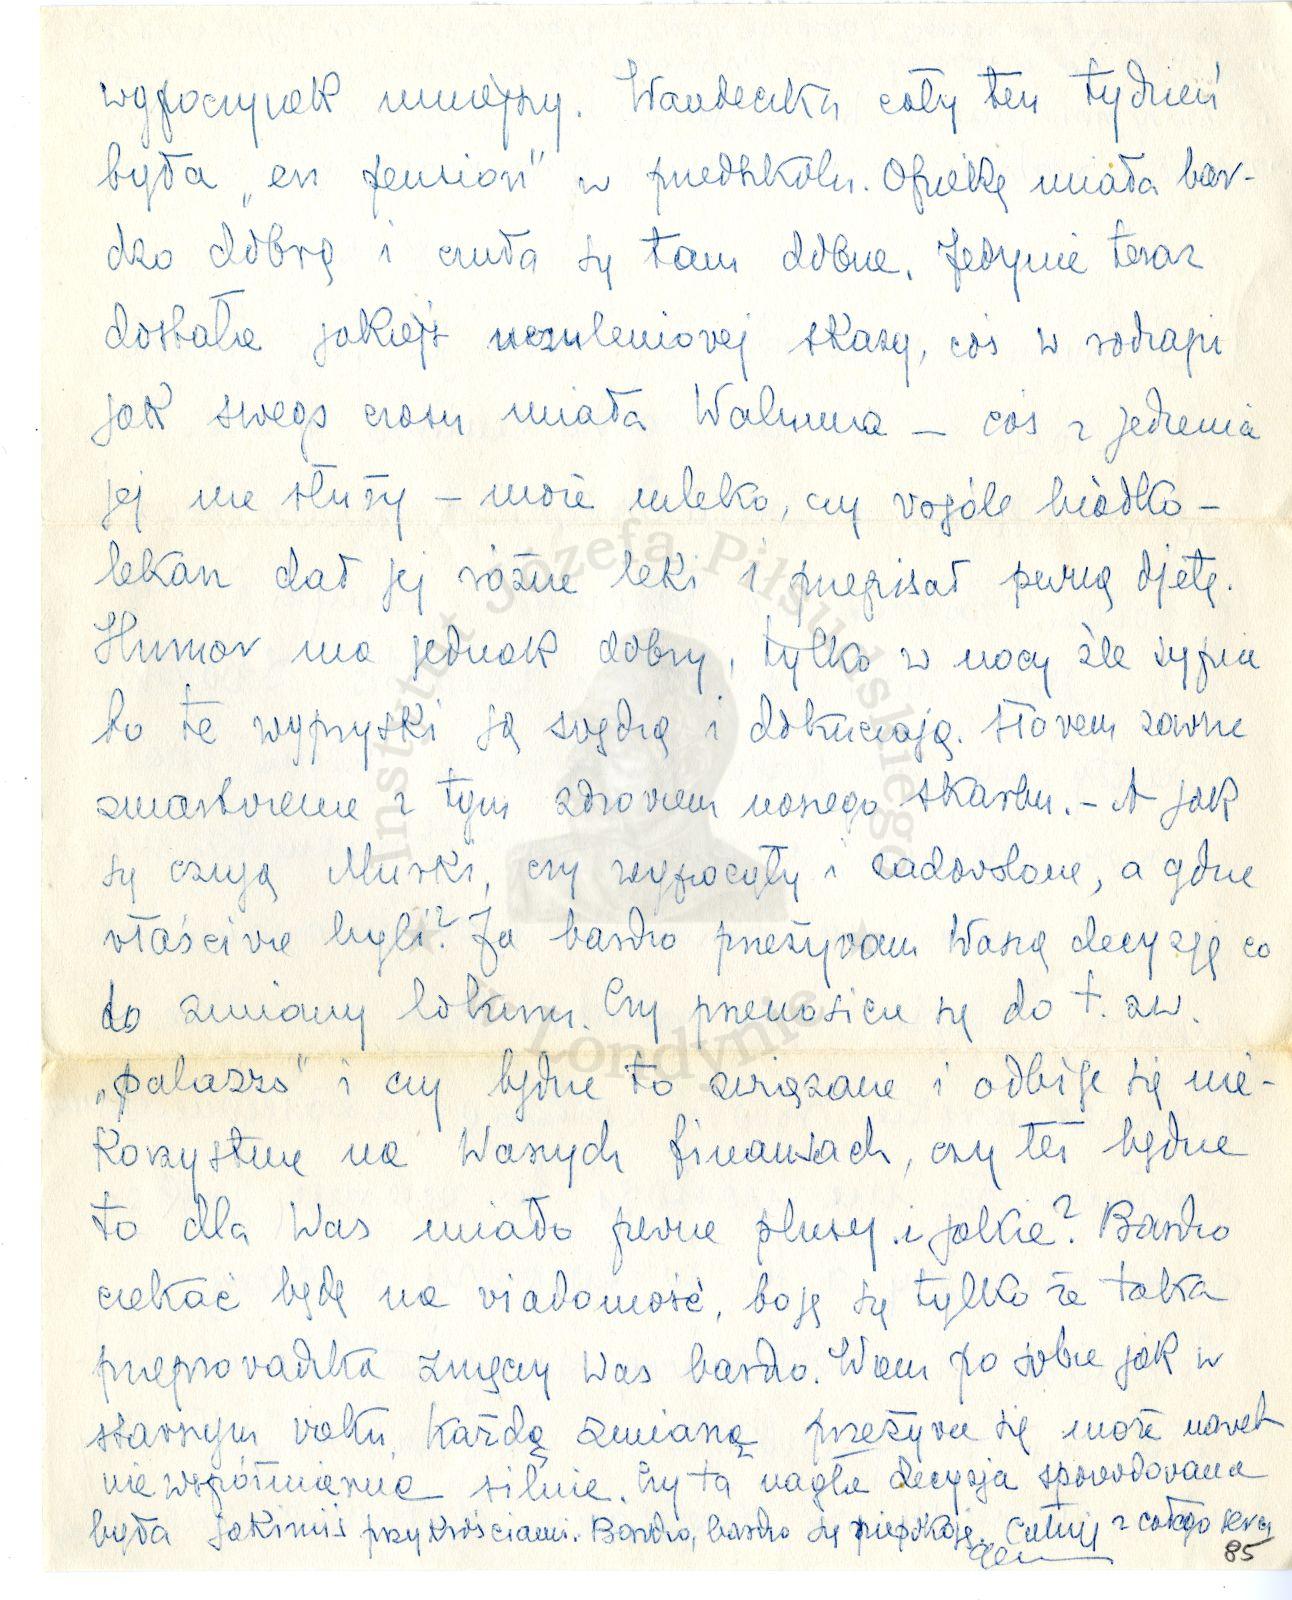 wypoczynek mniejszy. Wandeczka cały ten tydzień
była „en pension" w przedszkolu. Opiekę miała bar-
dzo dobrą i czuła się tam dobrze. Jedynie teraz
dostała jakiejś uczuleniowej skazy, coś w rodzaju
jak swego czasu miała – coś z jedzenia
jej nie służy – może mleko, czy wogóle białko –
lekarz dał jej różne leki i przepisał pewną djetę.
Humor ma jednak dobry, tylko w nocy źle sypia
bo te wypryski ją swędzą i dokuczają. Słowem zawsze
zmartwienie z tym zdrowiem naszego skarbu. – A jak
się czują Murki, czy wypoczęły i zadowolone, a gdzie
właściwie byli? Ja bardzo przeżywam Waszą decyzję co
do zmiany lokum. Czy przenosicie się do t. zw.
„palazzo" i czy będzie to związane i odbije się nie-
korzystnie na Waszych finansach, czy też będzie
to dla Was miało pewne plusy i jakie? Bardzo
czekać będę na wiadomość, boję się tylko że taka
przeprowadzka zmęczy Was bardzo. Wiem po sobie jak w
starszym wieku każdą zmianę przeżywa się może nawet
niewspółmiernie silnie. Czy ta nagła decyzja spowodowana
była jakimiś przykrościami. Bardzo, bardzo się niepokoję. Całuję z całego serca
85
Instytut Józefa Piłsudskiego
w Londynie